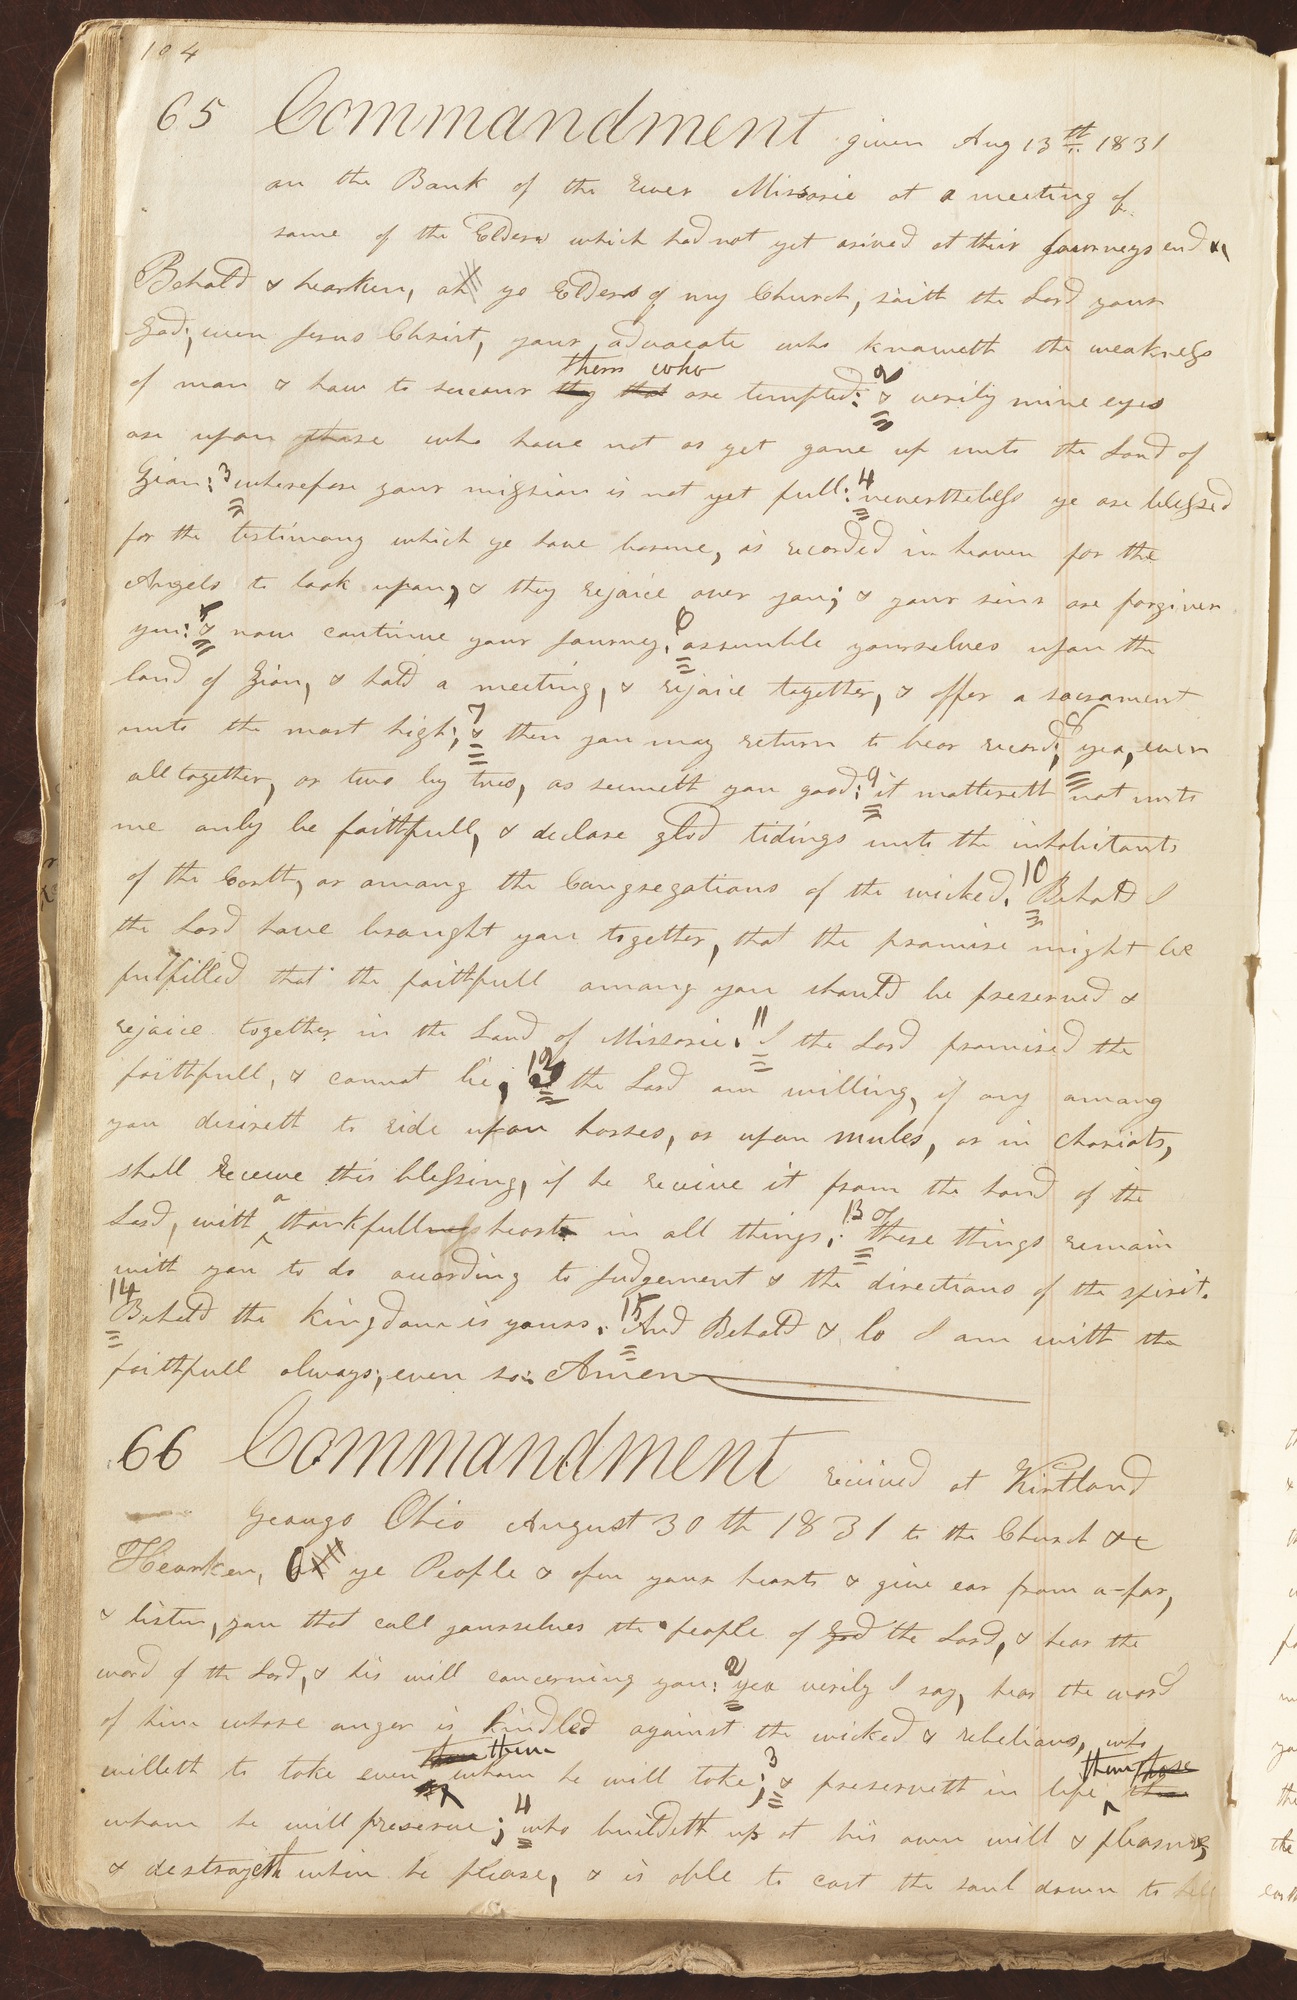 104
65 Commandment given Aug 13th 1831
on the Bank of the River Missorie at a meeting of
some of the Elders which had not yet arived at their Journeys end &c
Behold & hearken, oh ye Elders of my Church, saith the Lord your
God; even Jesus Christ, your advocate who knoweth the weakness
them who
of man & how to succour they that are tempted: 2 & verily mine eyes
are upon those who have not as yet gone up unto the Land of
Zion: 3 wherefore your mission is not yet full: 4 nevertheless ye are blessed
for the testimony which ye have borne, is recorded in heaven for the
Angels to look upon, & they rejoice over you; & your sins are forgiven
you: 5 & now continue your Journey. 6 assemble yourselves upon the
land of Zion, & hold a meeting, & rejoice together, & offer a sacrament
unto the most high; 7 & then you may return to bear record; 8 yea, even
alltogether, or two by two, as seemeth you good: 9 it mattereth not unto
me only be faithfull, & declare glad tidings unto the inhabitants
of the Earth, or among the Congregations of the wicked. 10 Behold I
the Lord have brought you together, that the promise might be
fulfilled that the faithfull among you should be preserved &
rejoice together in the Land of Missorie. 11 I the Lord promised the
faithfull, & cannot lie; 12 I the Lord am willing, if any among
you desireth to ride upon horses, or upon mules, or in chariots,
shall receive this blessing, if he receive it from the hand of the
Lord, with a thankfullness heart in all things; 13 these things remain
with you to do according to Judgement & the directions of the spirit.
14 Behold the kingdom is yours: 15 And Behold & lo I am with the
faithfull always; even so: Amen
66 Commandment received at Kirtland
Geauga Ohio August 30th 1831 to the Church &c
Hearken, O ye People & open your hearts & give ear from a-far,
& listen, you that call yourselves the people of god the Lord, & hear the
word of the Lord, & his will concerning you: 2 yea verily I say, hear the word
of him whose anger is kindled against the wicked & rebelious, who
them them those
willeth to take even whom he will take; 3 & preserveth in life
whom he will preserve; 4 who buildeth up at his own will & pleasure,
& destroyeth when he please, & is able to cast the soul down to hell